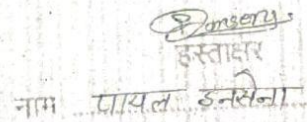 हस्ताक्षर
नाम पायल इनसेना